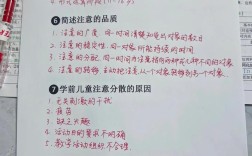 ⑥简述注意的品质
1. 注意的广度：同一时间清楚知觉对象的数目
2. 注意的稳定性：同一对象所能持续的时间
3. 注意的分配：同一时间内注意指向两种或几种不同的对象
4. 注意的转移：主动把注意从一个对象转移到另一个对象
⑦学前儿童注意分散的原因
1. 无关刺激的干扰
2. 疲劳
3. 缺乏兴趣
4. 活动目的要求不明确
5. 教学活动组织不合理